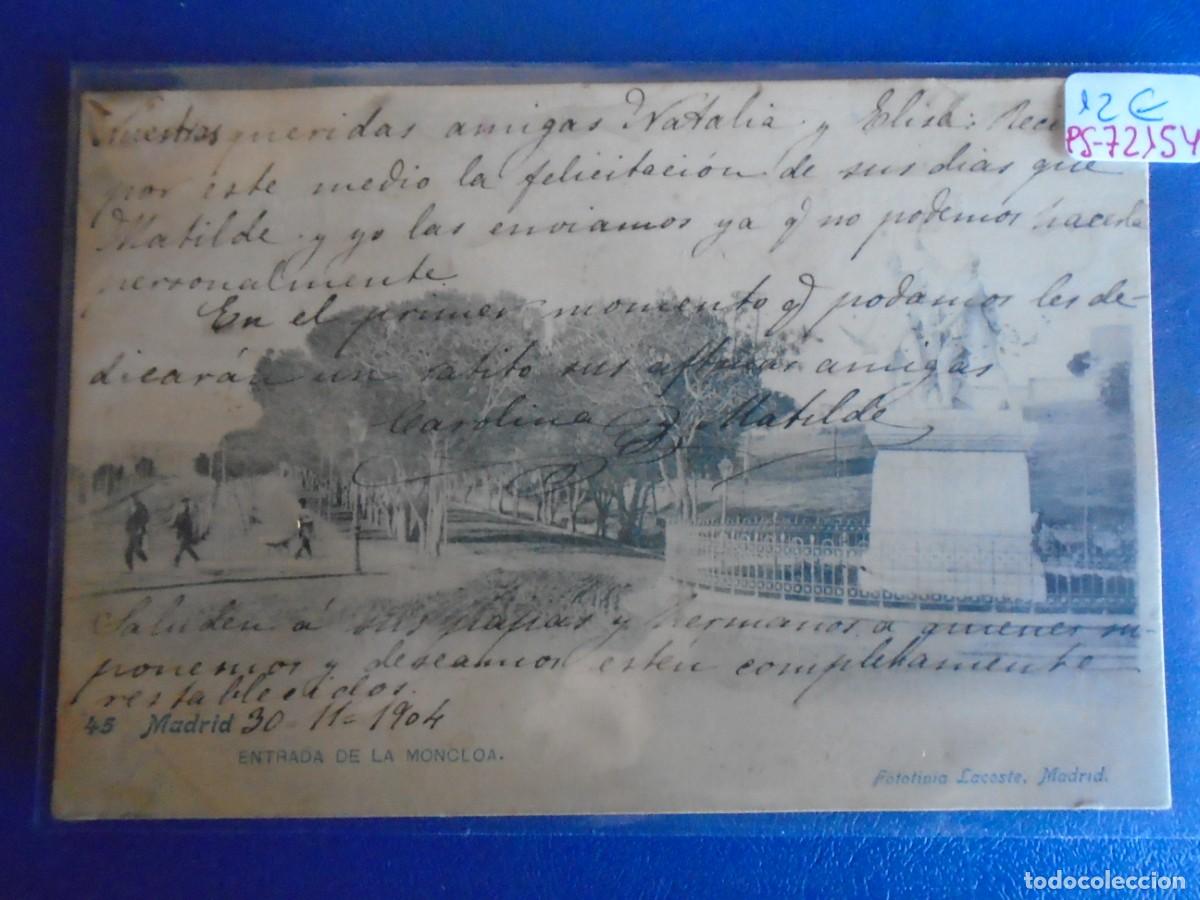 Nuestras queridas amigas Natalia y Elisa: Reci
por este medio la felicitación de sus dias que
Matilde y yo las enviamos ya q no podemos hacerla
personalmente.
En el primer momento q podamos les de-
dicarán un ratito sus afmas amigas
Carolina y Matilde
Saluden á sus papás y hermanos, a quienes su-
ponemos y deseamos estén completamente
restablecidos.
45 Madrid 30-11-1904
ENTRADA DE LA MONCLOA.
Fototipia Lacoste, Madrid.
12 €
PS-72154
todocoleccion